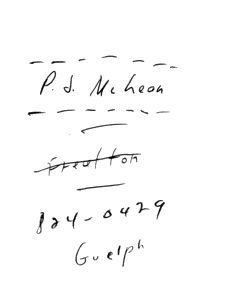 P. J. McLean
824-0429
Guelph